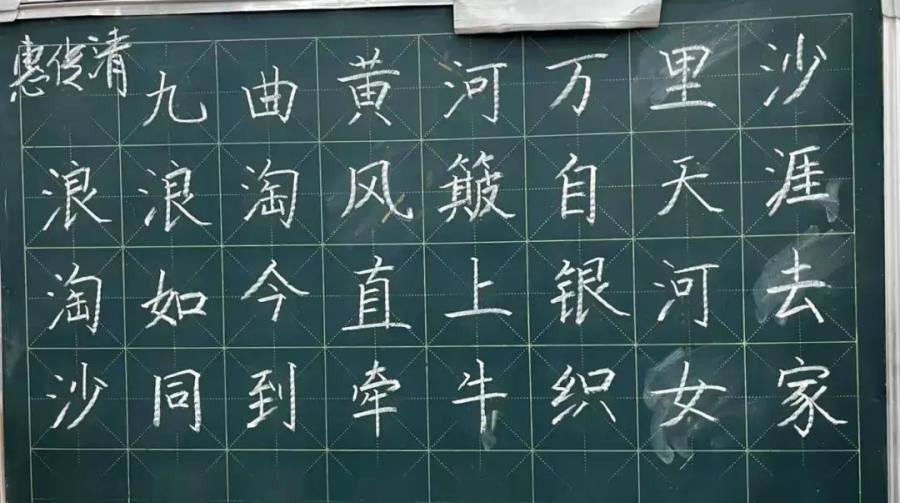 惠传清
九曲黄河万里沙
浪浪淘风簸自天涯
淘如今直上银河去
沙同到牵牛织女家